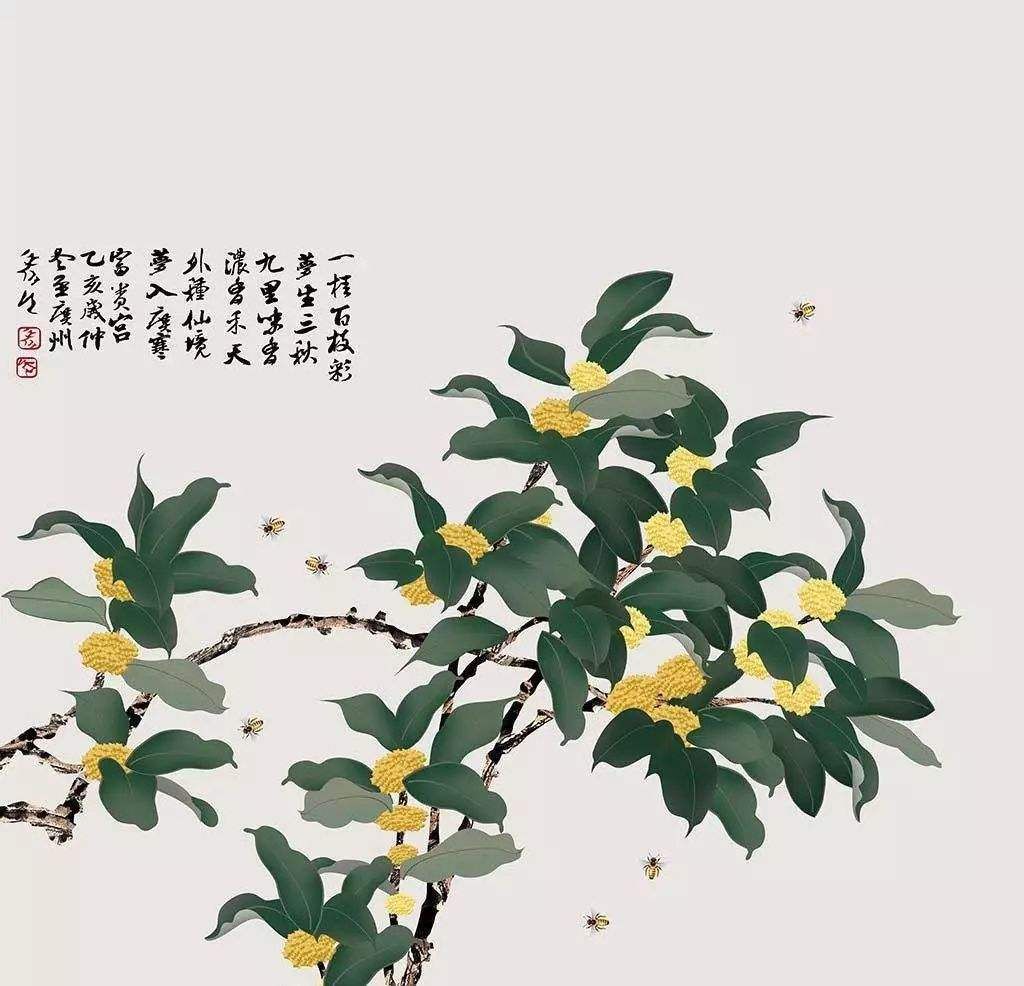 一桂百枝彩
夢生三秋
九里味香
濃香禾天
外種仙境
夢入廣寒
富贵宫
乙亥歲仲
冬至廣州